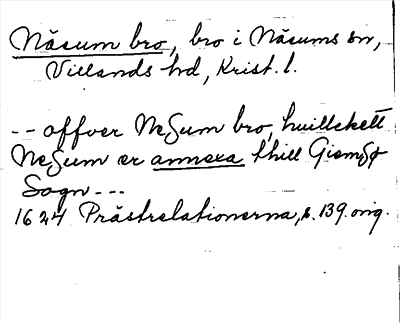 Näsum bro, bro i Näsums sn,
Villands hd, Krist. l.
-- offver NeSum bro, huillckett
NeSum er annexa thill GiemSø
Sogn ---
1624 Prästrelationerna, s. 139. orig.